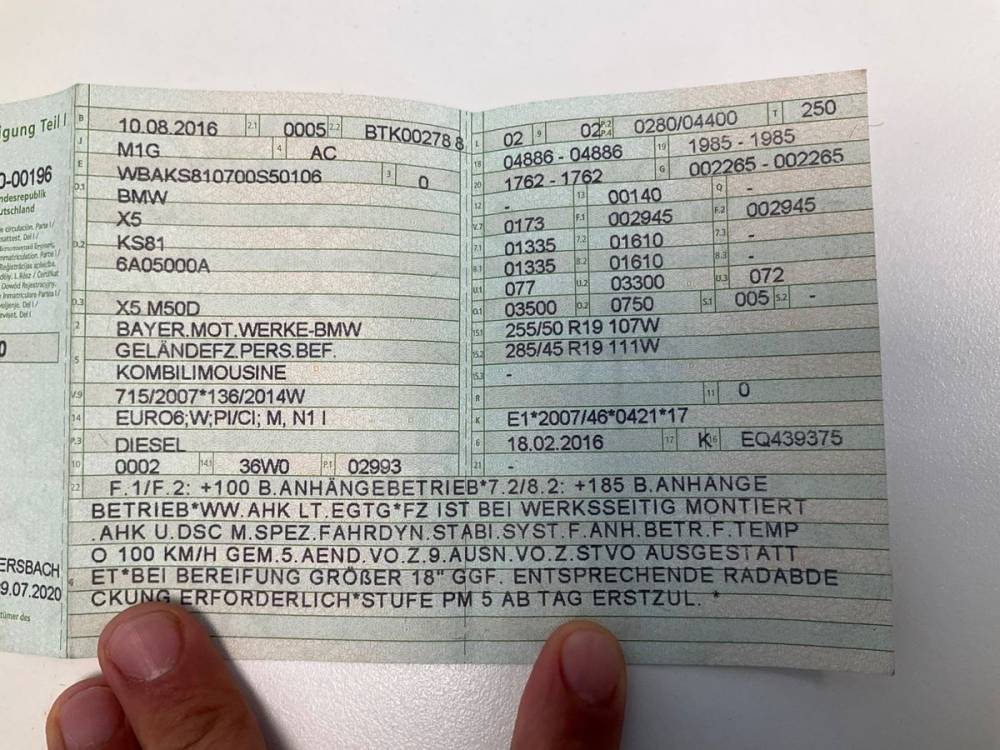 igung Teil I
0-00196
ndesrepublik
utschland
0
ERSBACH
9.07.2020
tümer des
B 10.08.2016 2.1 0005 2.2 BTK00278 8
J M1G 4 AC
E WBAKS810700S50106 3 0
D.1 BMW
X5
D.2 KS81
6A05000A
D.3 X5 M50D
2 BAYER.MOT.WERKE-BMW
5 GELÄNDEFZ.PERS.BEF.
KOMBILIMOUSINE
V.9 715/2007*136/2014W
14 EURO6;W;PI/CI; M, N1 I
P.3 DIESEL
10 0002 14.1 36W0 P.1 02993
L 02 9 02 P.2 P.4 0280/04400 T 250
18 04886 - 04886 19 1985 - 1985
20 1762 - 1762 G 002265 - 002265
12 - 13 00140 Q -
V.7 0173 F.1 002945 F.2 002945
7.1 01335 7.2 01610 7.3 -
8.1 01335 8.2 01610 8.3 -
U.1 077 U.2 03300 U.3 072
O.1 03500 O.2 0750 S.1 005 S.2 -
15.1 255/50 R19 107W
15.2 285/45 R19 111W
15.3 -
R 11 0
K E1*2007/46*0421*17
6 18.02.2016 17 K 16 EQ439375
21 -
22 F.1/F.2: +100 B.ANHÄNGEBETRIEB*7.2/8.2: +185 B.ANHANGE
BETRIEB*WW.AHK LT.EGTG*FZ IST BEI WERKSSEITIG MONTIERT
.AHK U.DSC M.SPEZ.FAHRDYN.STABI.SYST.F.ANH.BETR.F.TEMP
O 100 KM/H GEM.5.AEND.VO.Z.9.AUSN.VO.Z.STVO AUSGESTATT
ET*BEI BEREIFUNG GRÖßER 18" GGF. ENTSPRECHENDE RADABDE
CKUNG ERFORDERLICH*STUFE PM 5 AB TAG ERSTZUL. *